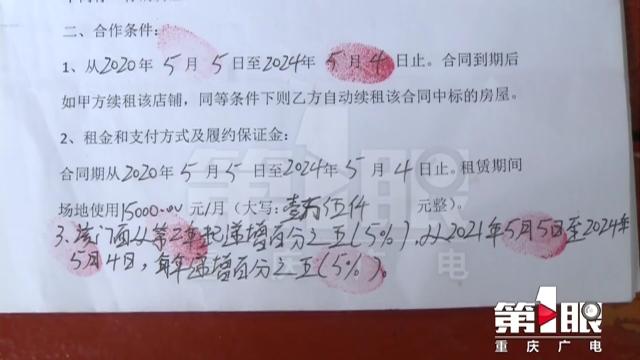 二、合作条件：
1、从2020年 5月 5日至2024年 5月 4日止。合同到期后
如甲方续租该店铺，同等条件下则乙方自动续租该合同中标的房屋。
2、租金和支付方式及履约保证金：
合同期从2020年 5月 5日至2024年 5月 4日止。租赁期间
场地使用15000.00元/月（大写：壹万伍仟 元整）。
3.该门面从第二年起递增百分之五(5%)，从2021年5月5日至2024年
5月4日，每年递增百分之五(5%)。
第1眼
重庆广电
第1眼
重庆广电